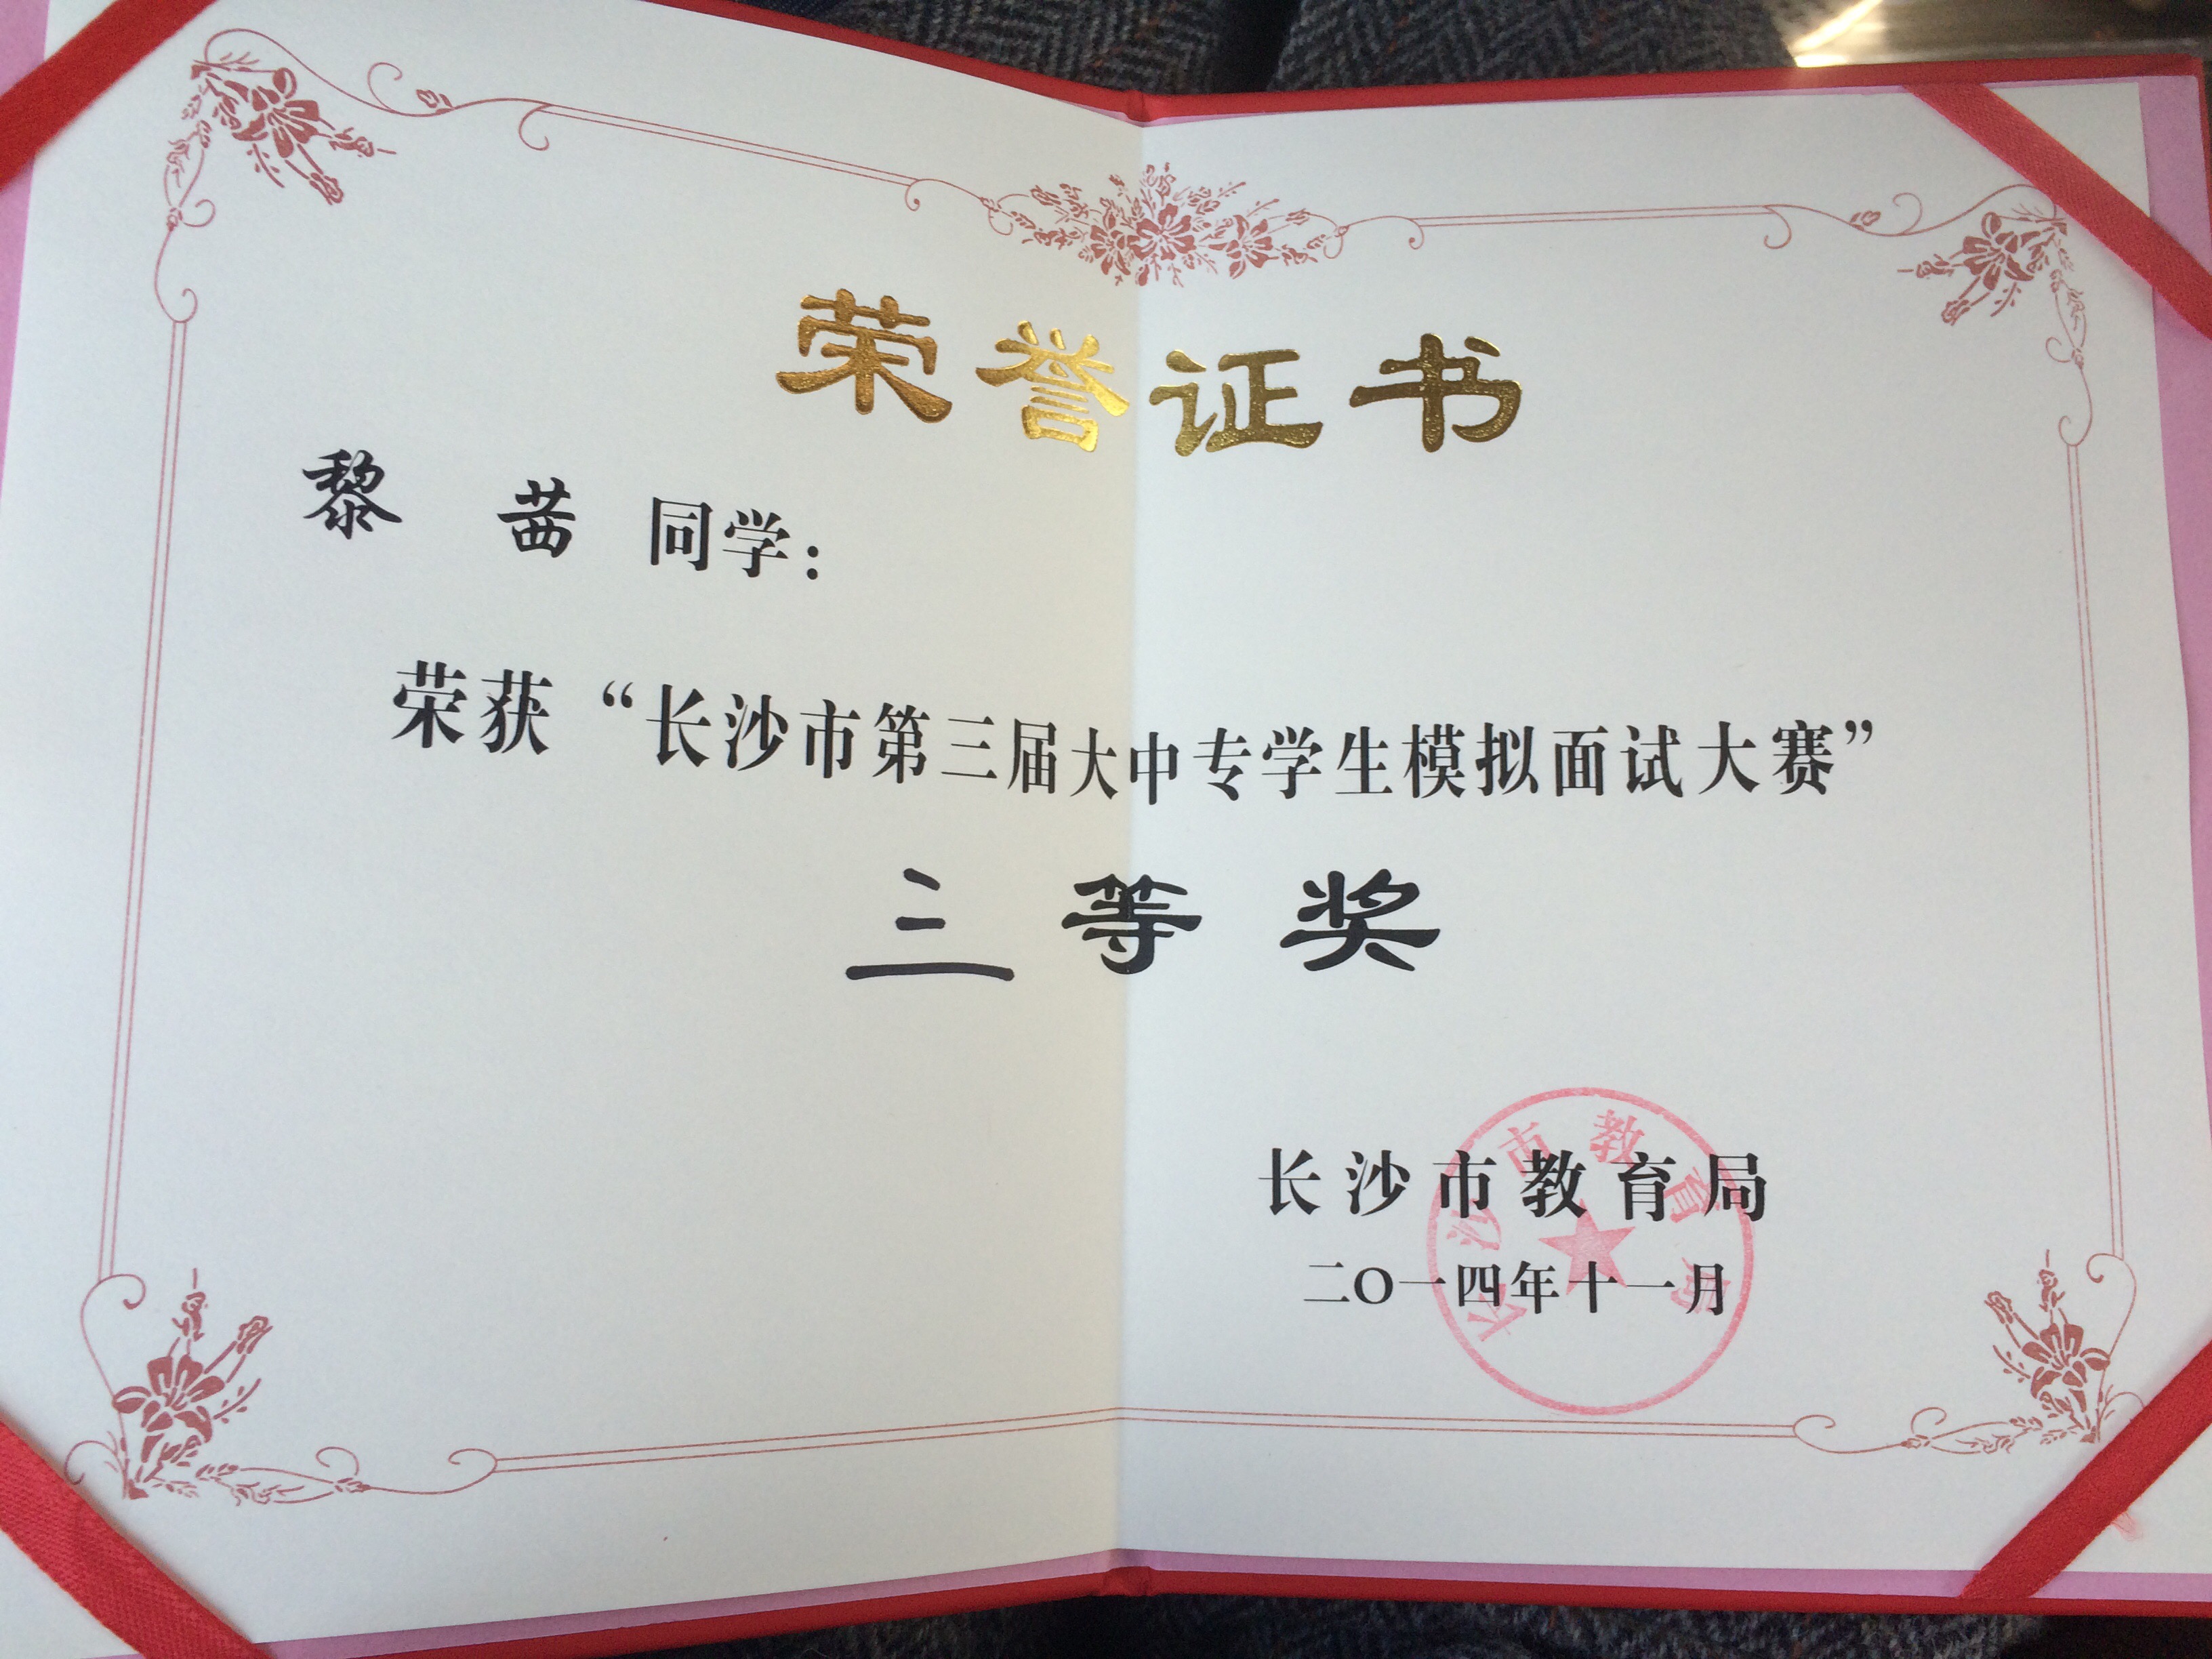 荣誉证书
黎 茜 同学：
荣获“长沙市第三届大中专学生模拟面试大赛”
三等奖
长沙市教育局
二〇一四年十一月
长沙市教育局